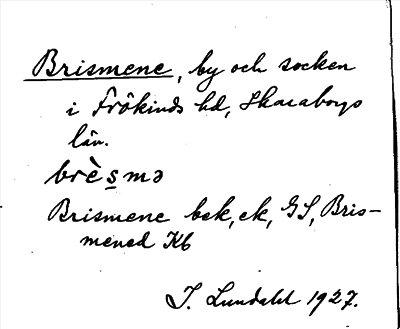 Brismene, by och socken
i Frökinds hd, Skaraborgs
län.
brèsmə
Brismene bsk, ek, GS, Bris-
mened Kb
I. Lundahl 1927.